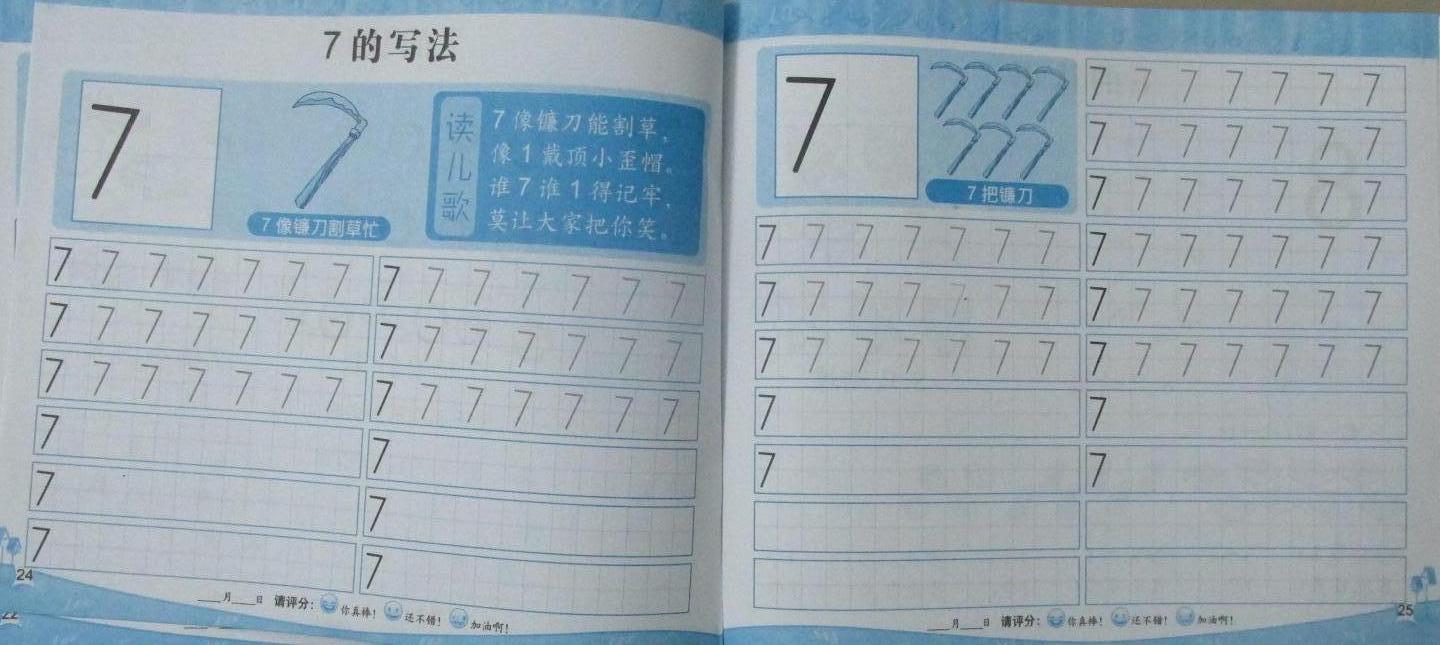 7的写法
7
读儿歌
7像镰刀能割草，
像1戴顶小歪帽。
谁7谁1得记牢，
莫让大家把你笑。
7像镰刀割草忙
7 7 7 7 7 7 7
7 7 7 7 7 7 7
7 7 7 7 7 7 7
7 7 7 7 7 7 7
7 7 7 7 7 7 7
7 7 7 7 7 7 7
7
7
7
7
7
7
24
22
____月____日 请评分： 你真棒！ 还不错！ 加油啊！
7
7把镰刀
7 7 7 7 7 7 7
7 7 7 7 7 7 7
7 7 7 7 7 7 7
7 7 7 7 7 7 7
7 7 7 7 7 7 7
7 7 7 7 7 7 7
7 7 7 7 7 7 7
7 7 7 7 7 7 7
7 7 7 7 7 7 7
7
7
7
7
____月____日 请评分： 你真棒！ 还不错！ 加油啊！
25